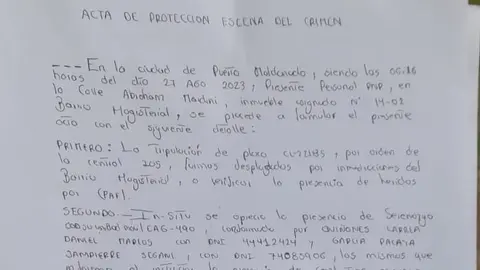 ACTA DE PROTECCION ESCENA DEL CRIMEN
--- En la ciudad de Puerto Maldonado, siendo las 06:16
horas del día 27 AGO 2023, Presente Personal PNP, en
la Calle Abraham inmueble signado N° 14-02
Barrio Magisterial, se procede a formular el presente
acta con el siguiente detalle:
PRIMERO: La Tripulación de placa por orden de
la central 205, fuimos desplazados por inmediaciones del
Barrio Magisterial, a verificar la presencia de heridos
por (PAF).
SEGUNDO: In-Situ se aprecio la presencia de Serenazgo
con su unidad movil CAG-490, conformado por QUIÑONES
DANIEL MARCOS con DNI 44412424 y GARCIA
JAMPIERRE con DNI 74085906, los mismos que